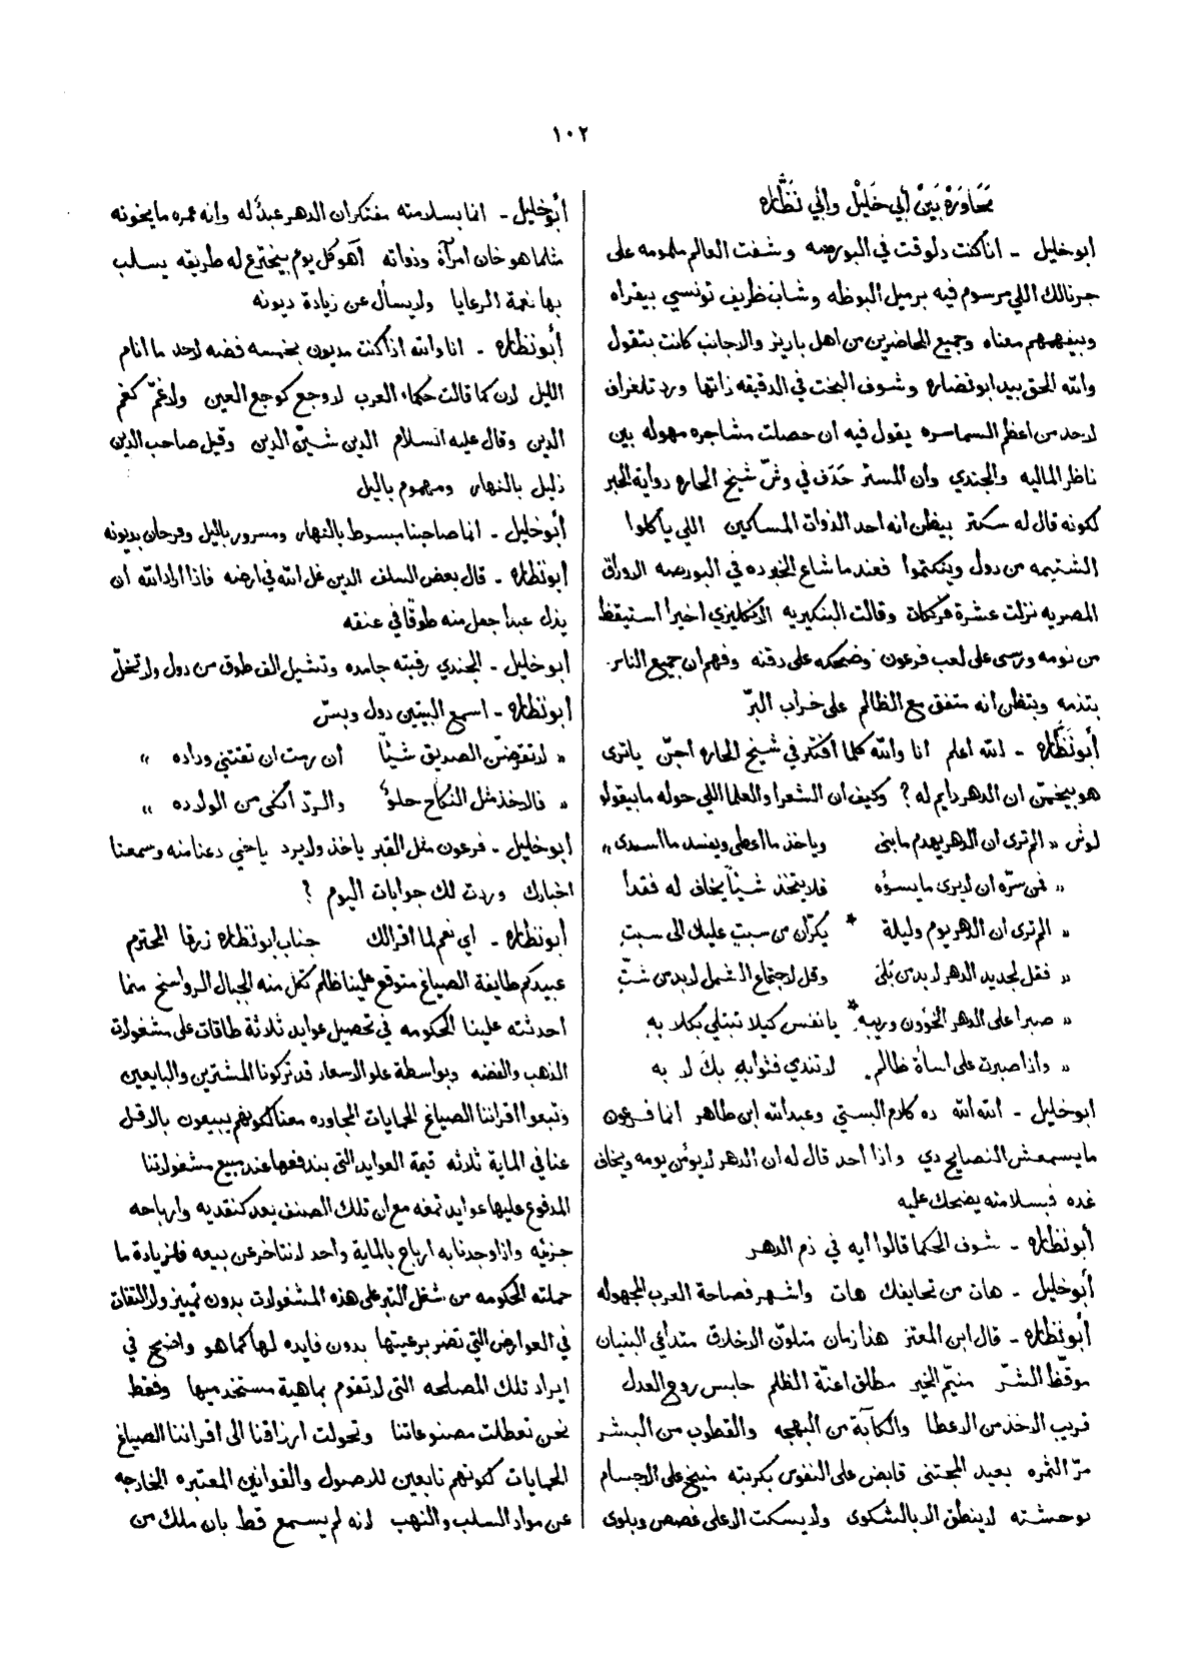 ١٠٢
مَحَاوَرَةْ بَيَنْ أَبِي خَلِيْل وِابِي نَظَّارَه
ابو خليل - انا كنت دلوقت في البورصه وشفت العالم ملمومه على
جرنالك اللي مرسوم فيه برميل البوظه وشاب ظريف تونسي بيقراه
وبيفهمهم معناه وجميع الحاضرين من اهل باريز والاجانب كانت بتقول
والله الحق بيد ابو نضاره وشوف البخت في الدقيقه ذاتها ورد تلغراف
لاحد من اعظم السماسره يقول فيه ان حصلت مشاجره مهوله بين
ناظر الماليه والجندي وان المستر حَدَف في وشّ شيخ الحاره دواية الحبر
لكونه قال له سكتر بيظن انه احد الذوات المساكين اللي يأكلوا
الشتيمه من دول ويتكتموا فعندما شاع الخبر ده في البورصه الاوراق
المصريه نزلت عشرة فرنكات وقالت البنكيريه الانكليزي اخيرا استيقظ
من نومه ورسى على لعب فرعون وضحكه على دقنه وفهم ان جميع الناس
بتذمه وبتظن انه متفق مع الظالم على خراب البرّ
أبو نَظَّاره - الله اعلم انا والله كلما افتكر في شيخ الحاره اجنّ ياترى
هو بيخمّن ان الدهر دايم له ؟ وكيف ان الشعرا والعلما اللي حوله ما بيقولو
لوش « الم ترى ان الدهر يهدم ما بنى وياخذ ما اعطى ويفسد ما اسدى »
« فمن سرّه ان لا يرى ما يسؤه فلا يتخذ شيئاً يخاف له فقداً
« الم ترى ان الدهر يوم وليلة * يكرّان من سبتٍ عليك الى سبتِ
« فقل لجديد الدهر لا بد من بُلىً وقل لاجتماع الشمل لا بد من شتِّ
« صبرا على الدهر الخؤون وريبه * يا نفس كيلا تبتلي بكلابهِ
« واذا صبرت على اسأة ظالم لا تندي فثوابهِ بك لا به
ابو خليل - الله الله ده كلام البستي وعبدالله ابن طاهر انما فرعون
ما يسمعش النصايح دي واذا احد قال له ان الدهر لا يؤمن يومه ويخاف
غده فبسلامته يضحك عليه
أبو نظاره - شوف الحكما قالوا ايه في ذم الدهر
أبو خليل - هات من تحايفك هات واشهر فصاحة العرب المجهوله
أبو نظاره - قال ابن المعتز هذا زمان متلوّن الاخلاق متداعي البنيان
موقظ الشرّ منيّم الخير مطلق اعنة الظلم حابس روح العدل
قريب الاخذ من الاعطا والكآبة من البهجه والقطوب من البشر
مرّ الثمره بعيد المجتنى قابض على النفوس بكربته منيخ على الاجسام
بوحشته لا ينطق الا بالشكوى ولا يسكت الا على غصص وبلوى
أبو خليل - انما بسلامته مفتكر ان الدهر عبدٌ له وانه عمره ما يخونه
مثلما هو خان امرآة وذواته آهو كل يوم بيخترع له طريقه يسلب
بها نعمة الرعايا ولا يسأل عن زيادة ديونه
أبو نظاره - انا والله اذا كنت مديون بخمسه فضه لاحد ما انام
الليل لان كما قالت حكماء العرب لا وجع كوجع العين ولا غمّ كغم
الدين وقال عليه السلام الدين شين الدين وقيل صاحب الدين
ذليل بالنهار ومهموم بالليل
أبو خليل - انما صاحبنا مبسوط بالنهار ومسرور بالليل وفرحان بديونه
أبو نظاره - قال بعض السلف الدين غل الله في ارضه فاذا اراد الله ان
يذل عبداً جعل منه طوقًا في عنقه
أبو خليل - الجندي رقبته جامده وتشيل الف طوق من دول ولا تخلّ
أبو نظاره - اسمع البيتين دول وبسّ
« لا تقرضنّ الصديق شيئاً أن رمت ان تقتني وداده »
« فالاخذ مثل النكاح حلوٌ والردّ أنكى من الولاده »
أبو خليل - فرعون مثل القبر ياخذ ولا يرد ياخي دعنا منه وسمعنا
اخبارك وردت لك جوابات اليوم ؟
أبو نظاره - اي نعم لما اقرالك جناب ابو نظاره زرقا المحترم
عبيدكم طايفة الصياغ متوقع علينا ظلم تكل منه الجبال الرواسخ مما
احدثته علينا الحكومه في تحصيل عوايد ثلاثة طاقات على مشغولات
الذهب والفضه وبواسطة علو الاسعار قد تركونا المشترين والبايعين
وتبعوا اقراننا الصياغ الحمايات المجاوره معنا لكونهم يبيعون بالاقل
عنا في الماية ثلاثه قيمة العوايد التى بندفعها عند مبيع مشغولاتنا
المدفوع عليها عوايد تمغه مع ان تلك الصنف يعد كنقديه وارباحه
جزئيه واذا وجدنا به ارباح بالماية واحد لا نتاخر عن بيعه فلزيادة ما
حملته الحكومه من شغل التبر على هذه المشغولات بدون تمييز ولا التفات
في العوارض التي تضر برعيتها بدون فايده لها كما هو واضح في
ايراد تلك المصلحه التى لا تقوم بماهية مستخدميها وفقط
نحن تعطلت مصنوعاتنا وتحولت ارزاقنا الى اقراننا الصياغ
الحمايات كونهم تابعين للاصول والقوانين المعتبره الخارجه
عن مواد السلب والنهب لانه لم يسمع قط بان ملك من